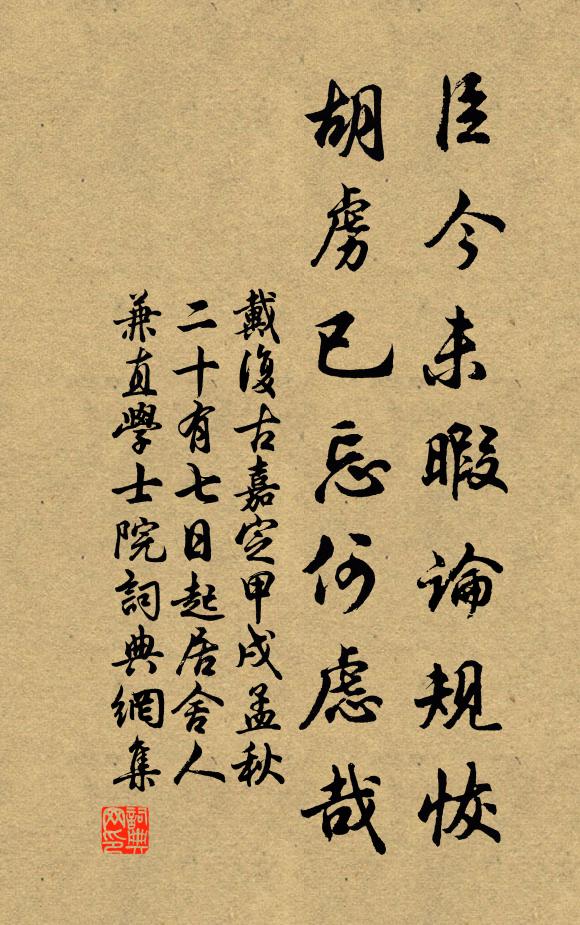 臣今未暇論規恢
胡虜已忘何慮哉
戴復古嘉定甲戌孟秋
二十有七日起居舍人
兼直學士院詞典網集
詞典网印